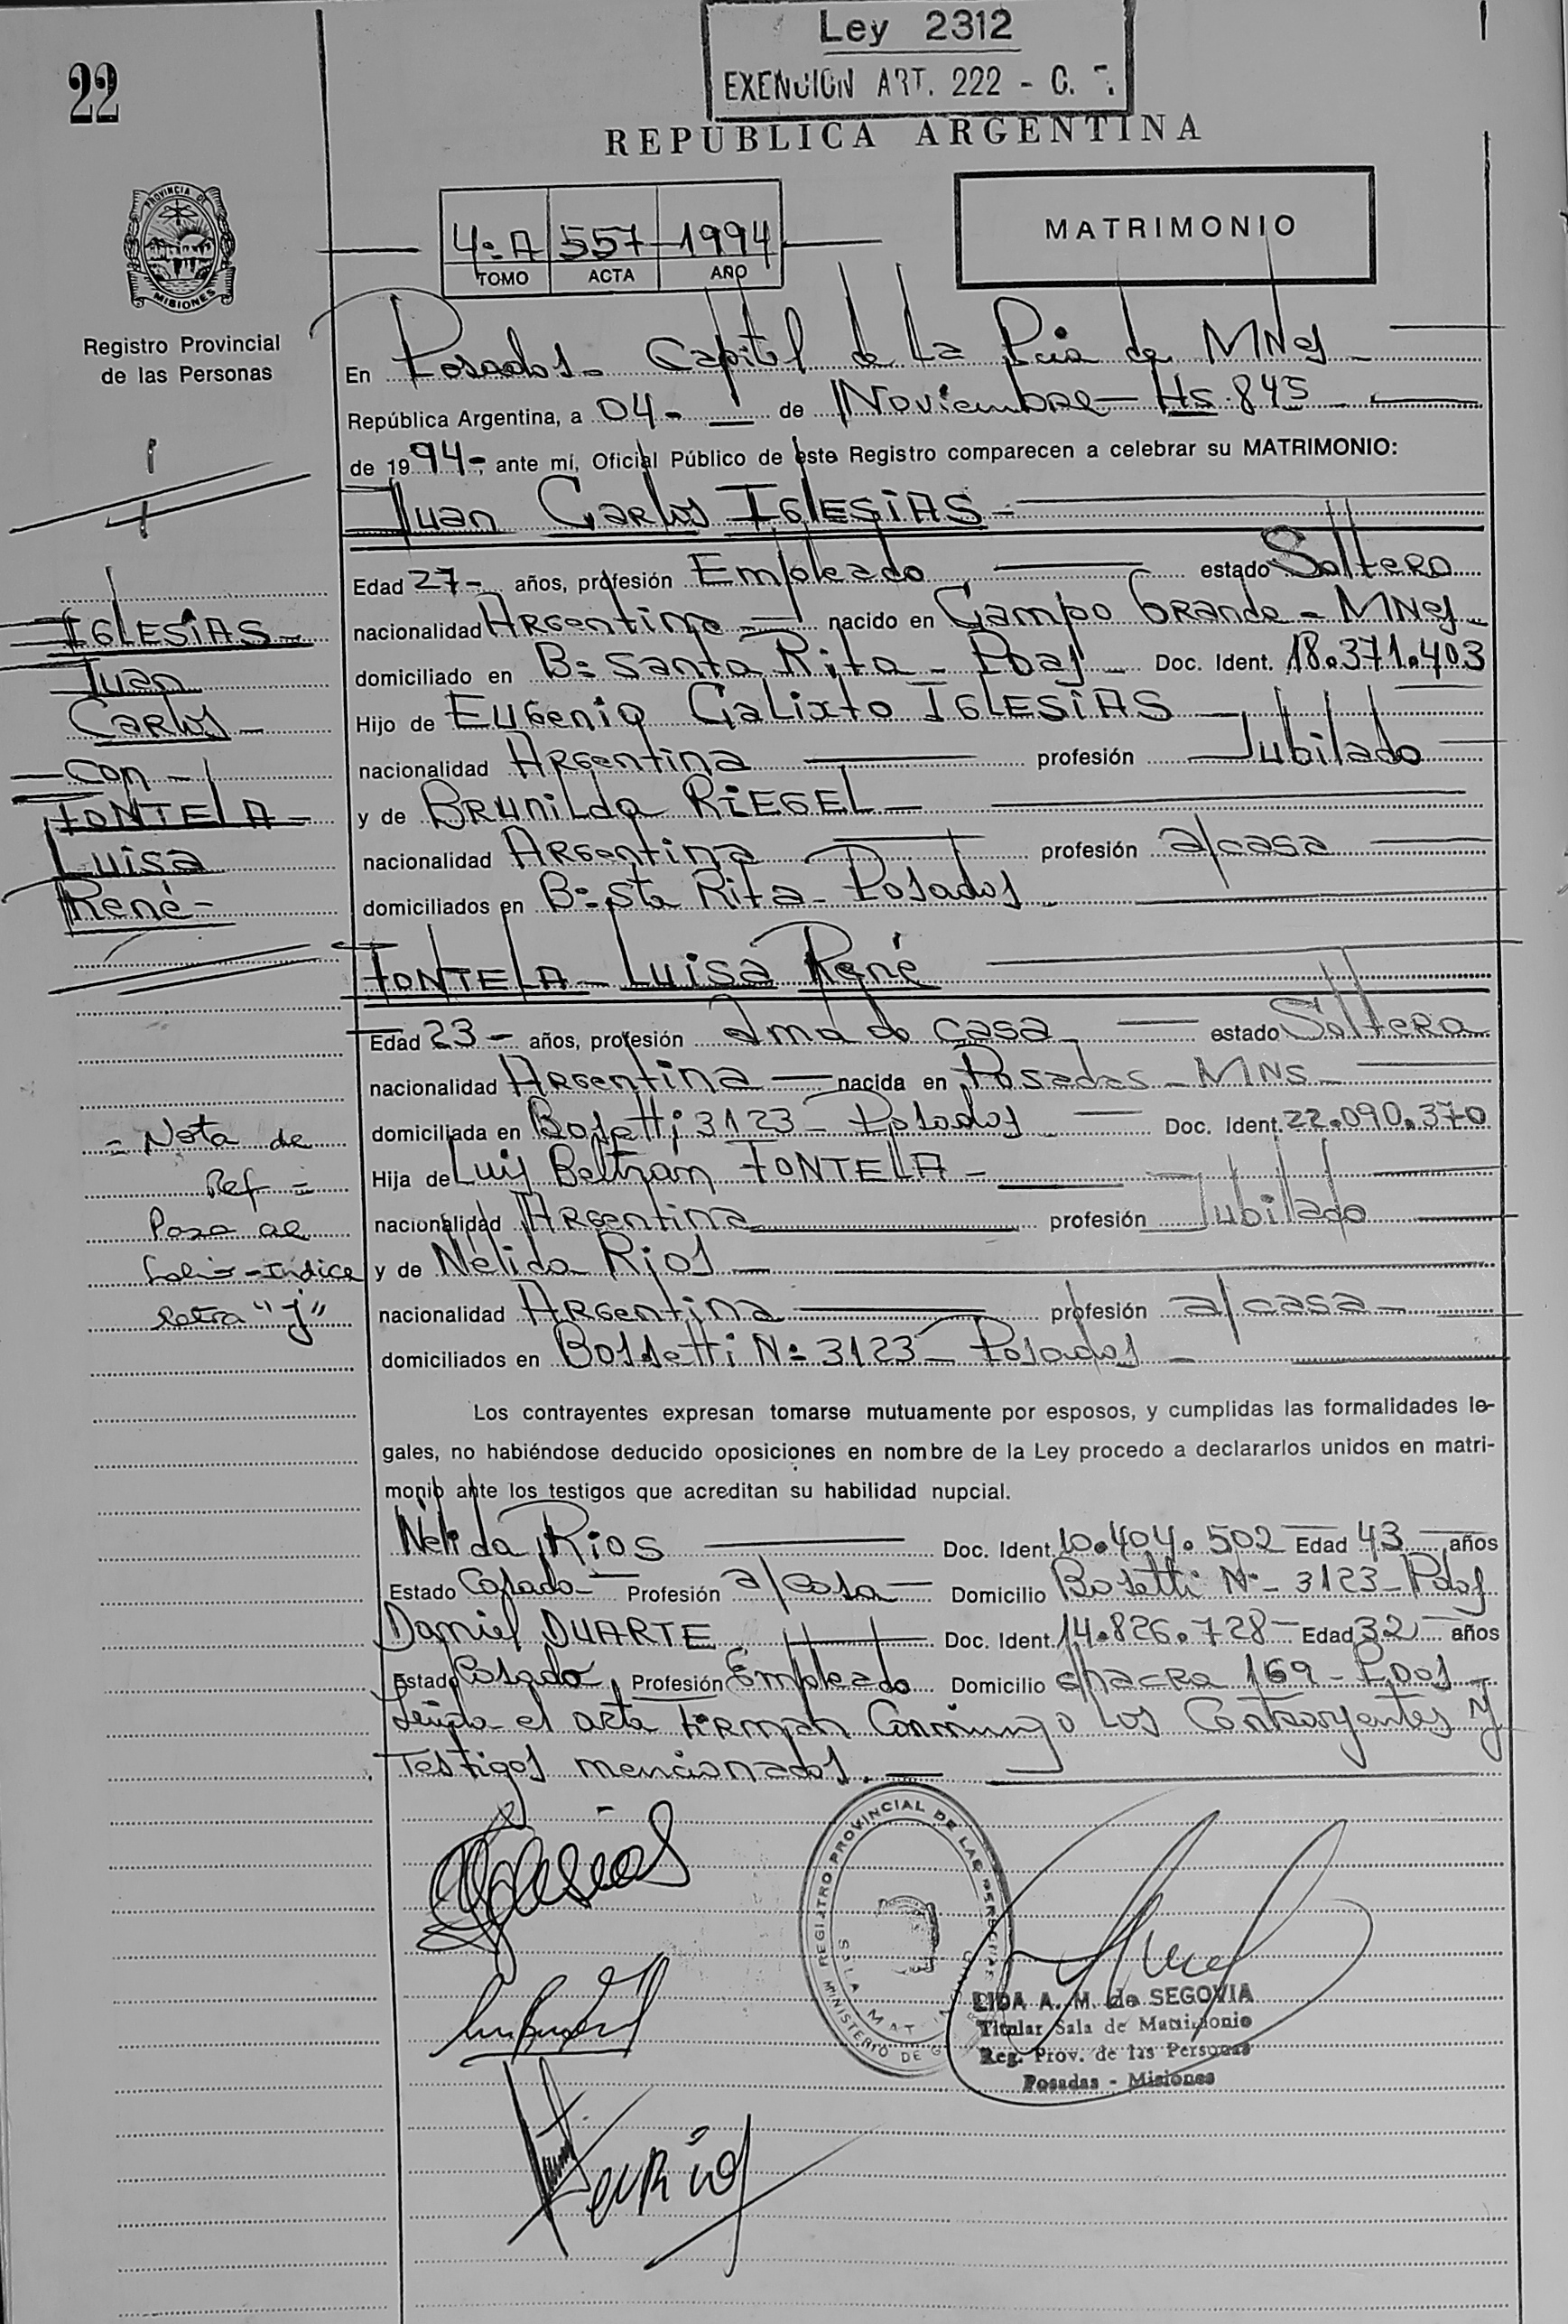 Ley 2312
EXENCIÓN ART. 222 - C.
22
REPUBLICA ARGENTINA
PROVINCIA DE
MISIONES
4º A 557 1994
TOMO ACTA AÑO
MATRIMONIO
Registro Provincial
de las Personas
En Posadas - Capital de La Pcia de MNes
República Argentina, a 04 - de Noviembre - Hs. 845
de 1994 -, ante mí, Oficial Público de este Registro comparecen a celebrar su MATRIMONIO:
Juan Carlos IGLESIAS -
Edad 27 - años, profesión Empleado estado Soltero
nacionalidad Argentina nacido en Campo Grande - MNes
domiciliado en Bº Santa Rita - Pdas Doc. Ident. 18.371.403
Hijo de Eugenio Calixto IGLESIAS
nacionalidad Argentina profesión Jubilado
y de Brunilda RIEGEL
nacionalidad Argentina profesión a/casa
domiciliados en Bº Sta Rita - Posadas
IGLESIAS -
Juan
Carlos -
- Con -
FONTELA -
Luisa
René -
FONTELA - Luisa René
Edad 23 - años, profesión Ama de casa estado Soltera
nacionalidad Argentina nacida en Posadas - MNS
domiciliada en Bosetti 3123 - Posadas Doc. Ident. 22.090.370
Hija de Luis Beltran FONTELA -
nacionalidad Argentina profesión Jubilado
y de Nélida Rios
nacionalidad Argentina profesión a/casa -
domiciliados en Bossetti Nº 3123 - Posadas
= Nota de
Ref =
Pasa al
Folio - Indice
letra "j"
Los contrayentes expresan tomarse mutuamente por esposos, y cumplidas las formalidades le-
gales, no habiéndose deducido oposiciones en nombre de la Ley procedo a declararlos unidos en matri-
monio ante los testigos que acreditan su habilidad nupcial.
Nélida Rios Doc. Ident. 10.404.502 Edad 43 años
Estado Casado - Profesión a/casa Domicilio Bosetti Nº - 3123 - Pdas
Daniel DUARTE Doc. Ident. 14.826.728 Edad 32 años
Estado Casado Profesión Empleado Domicilio chacra 169 - Pdas
Leída el acta firman Conmigo Los Contrayentes y
Testigos mencionados. -
Iglesias
REGISTRO PROVINCIAL DE LAS PERSONAS
MINISTERIO DE G
SALA MAT
LIDA A. M. de SEGOVIA
Titular Sala de Matrimonio
Reg. Prov. de las Personas
Posadas - Misiones